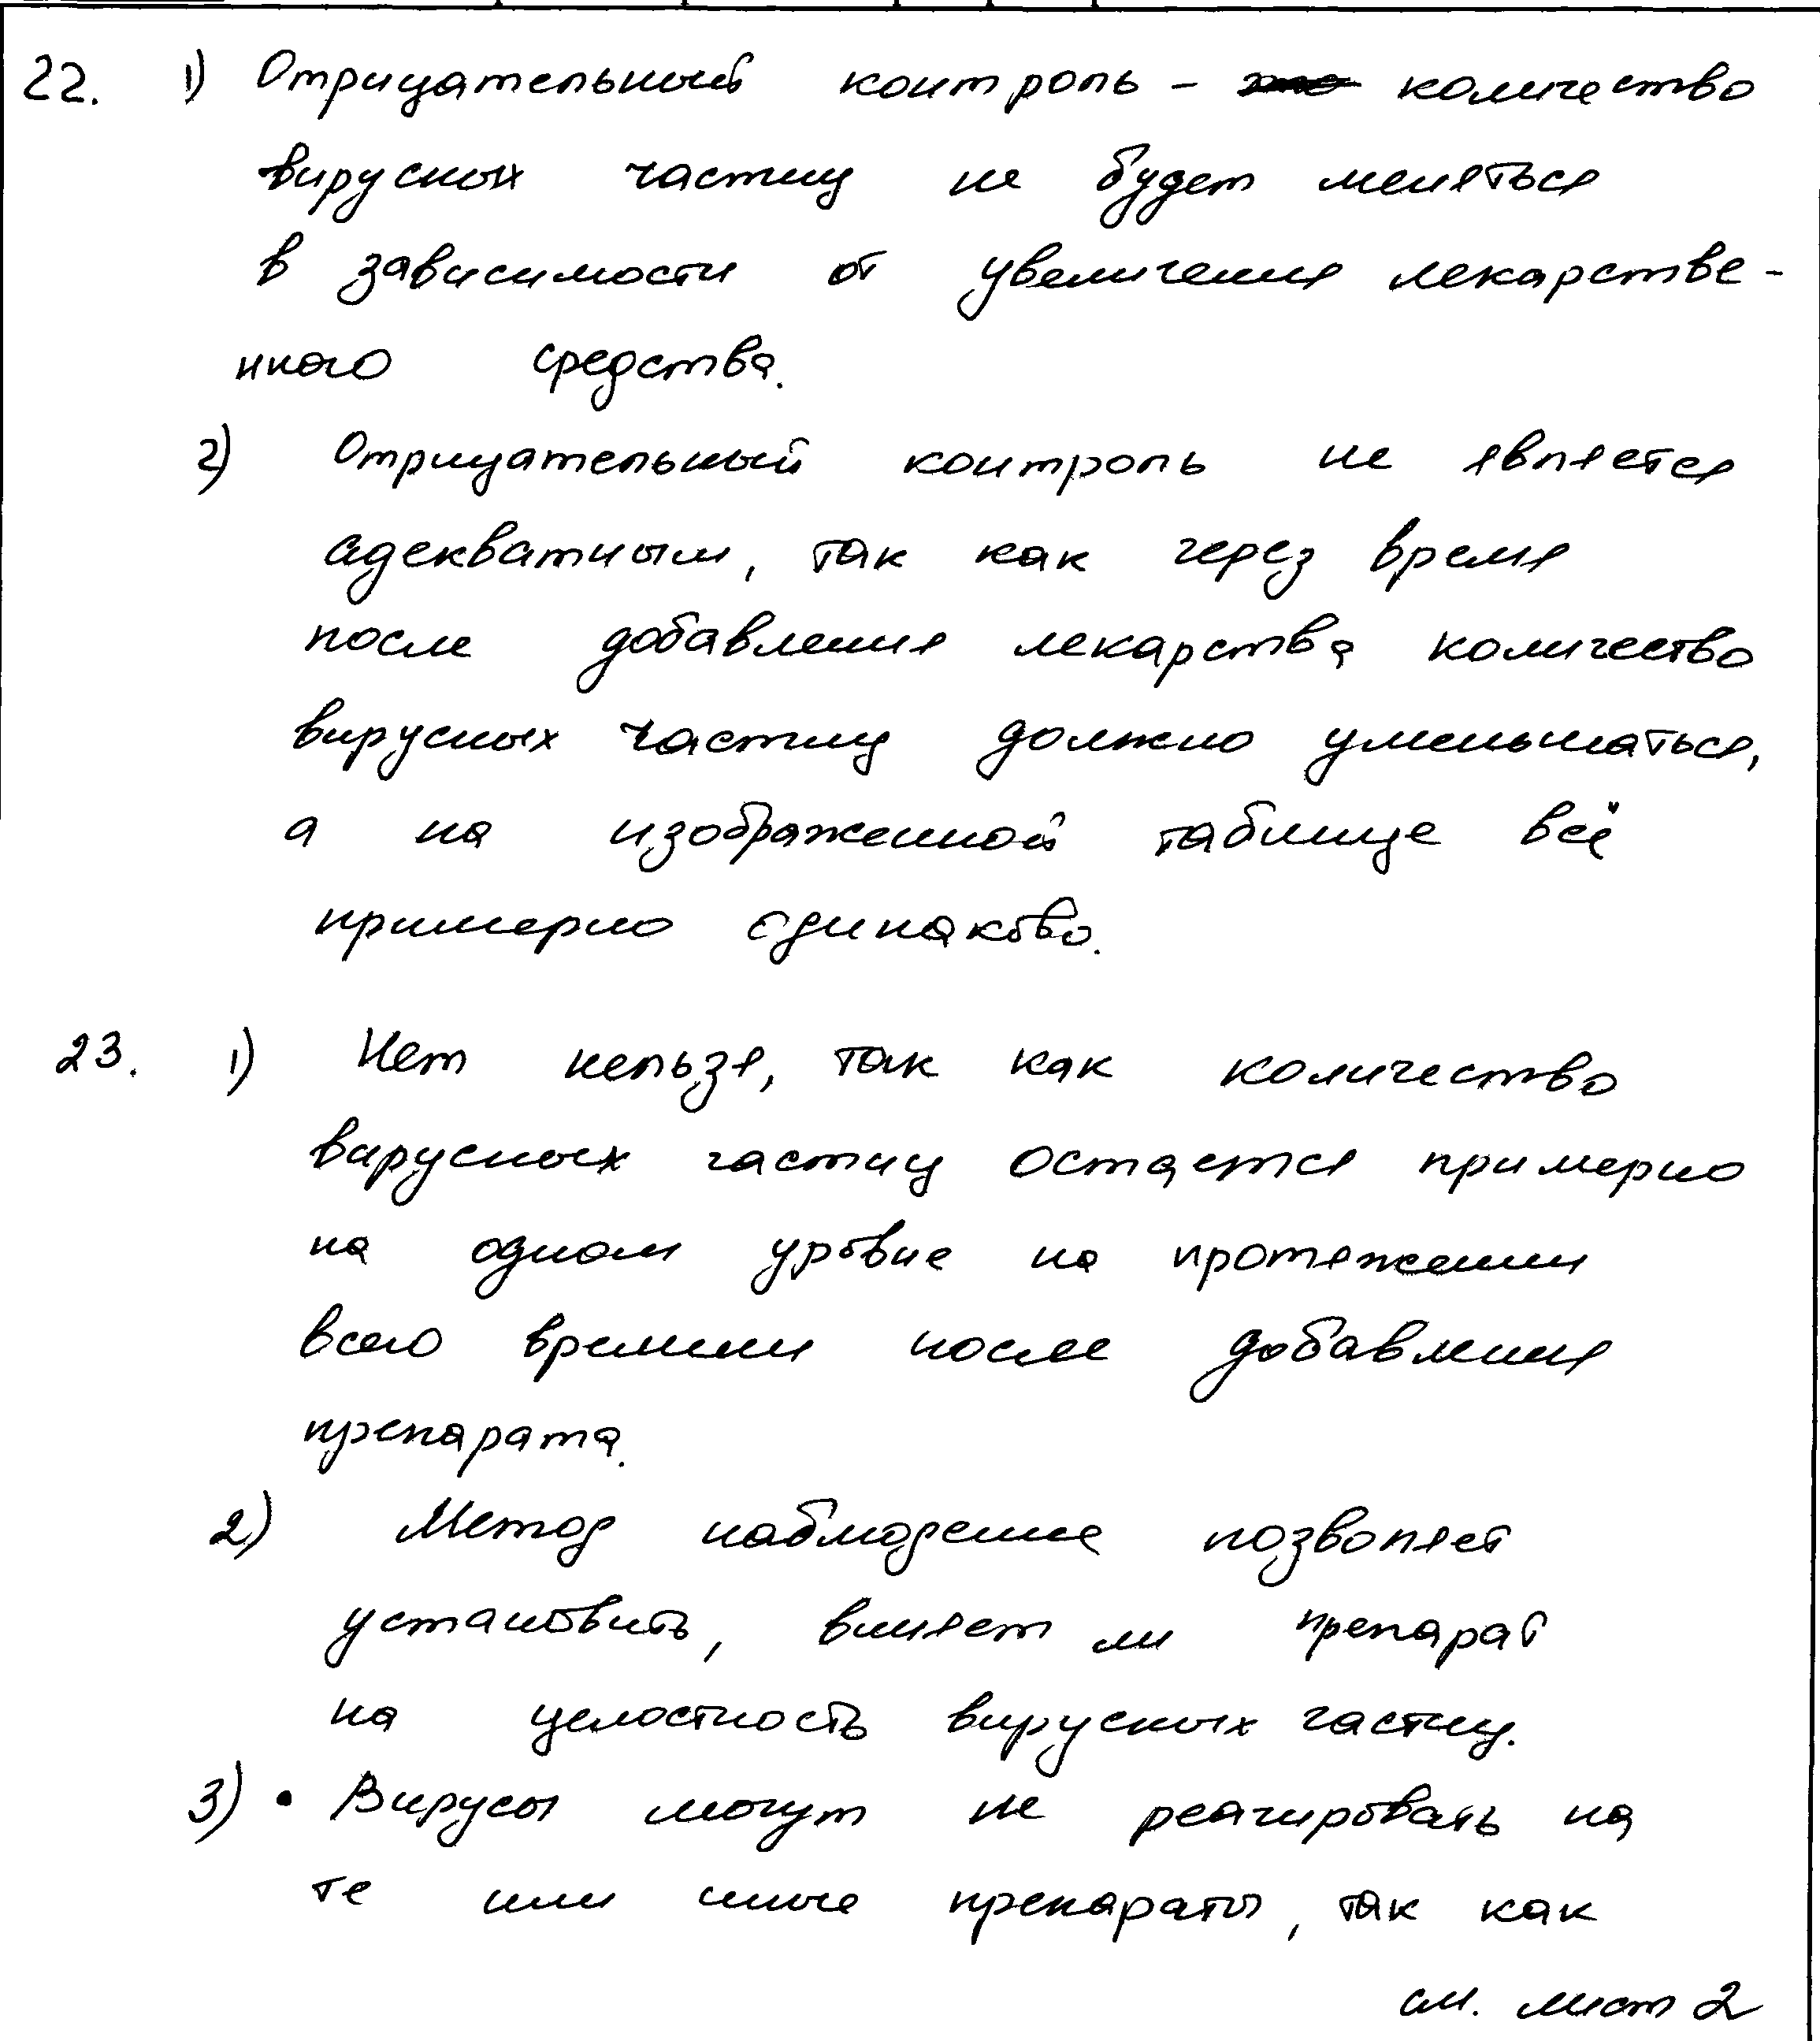 22. 1) Отрицательный контроль - количество
вирусных частиц не будет меняться
в зависимости от увеличения лекарстве-
нного средства.
2) Отрицательный контроль не является
адекватным, так как через время
после добавления лекарства количество
вирусных частиц должно уменьшаться,
а на изображенной таблице всё
примерно одинаково.
23. 1) Нет нельзя, так как количество
варусных частиц остается примерно
на одном уровне на протяжении
всего времени после добавления
препарата.
2) Метод наблюдение позволяет
установить, влияет ли препарат
на целостность вирусных частиц.
3) • Вирусы могут не реагировать на
те или иные препараты, так как
см. лист 2